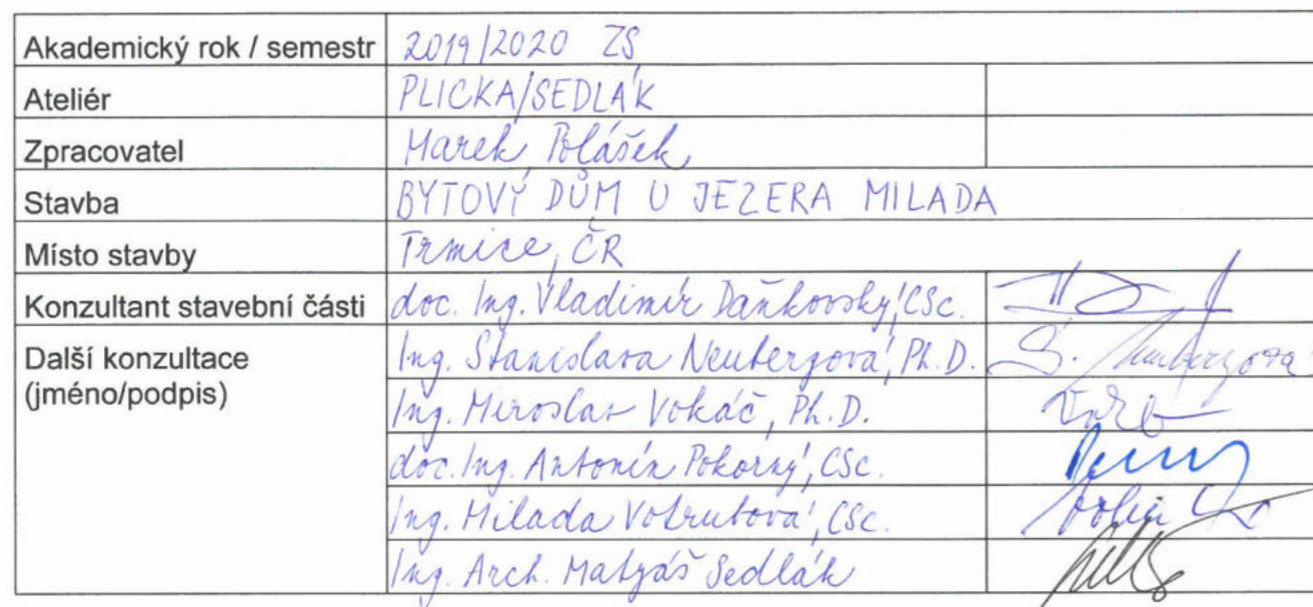 Akademický rok / semestr 2019/2020 ZS
Ateliér PLICKA/SEDLÁK
Zpracovatel Marek Polášek
Stavba BYTOVÝ DŮM U JEZERA MILADA
Místo stavby Trmice, ČR
Konzultant stavební části doc. Ing. Vladimír Daňkovský, CSc.
Další konzultace Ing. Stanislava Neubergová, Ph.D. S. Neubergová
(jméno/podpis) Ing. Miroslav Vokáč, Ph.D.
doc. Ing. Antonín Pokorný, CSc.
Ing. Milada Votrubová, CSc.
Ing. Arch. Matyáš Sedlák